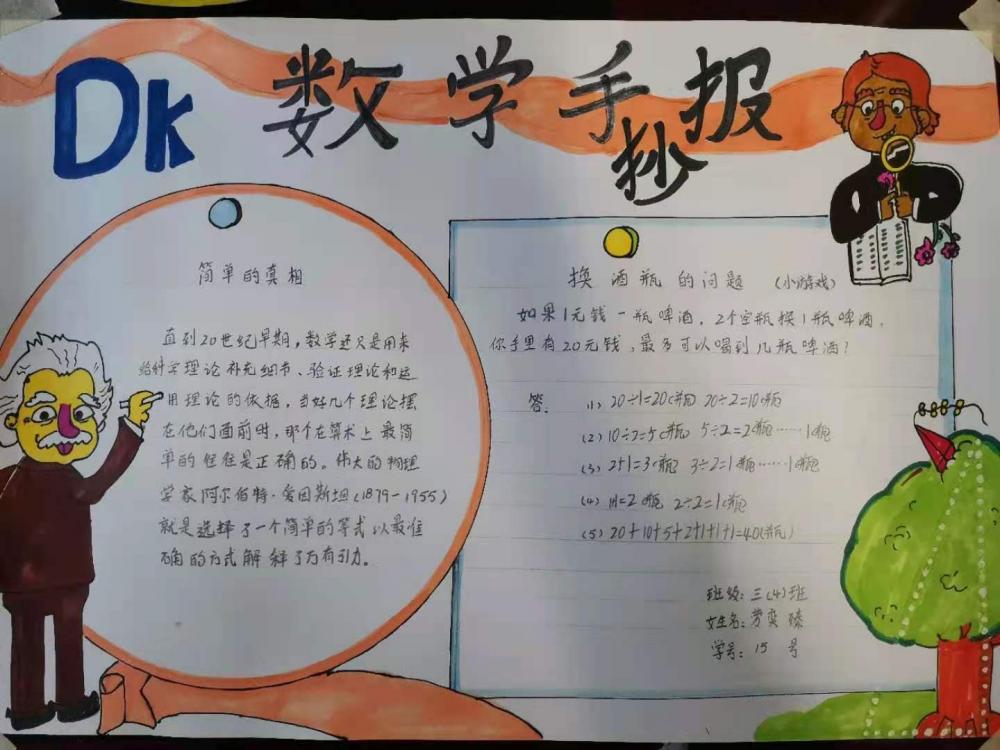 Dk
数学手抄报
简单的真相
直到20世纪早期，数学还只是用来
给科学理论补充细节、验证理论和运
用理论的依据，当好几个理论摆
在他们面前时，那个在算术上最简
单的但往是正确的。伟大的物理
学家阿尔伯特·爱因斯坦(1879-1955)
就是选择了一个简单的等式以最准
确的方式解释了万有引力。
换酒瓶的问题 (小游戏)
如果1元钱一瓶啤酒，2个空瓶换1瓶啤酒，
你手里有20元钱，最多可以喝到几瓶啤酒？
答： (1) 20÷1=20(瓶) 20÷2=10(瓶)
(2) 10÷2=5(瓶) 5÷2=2(瓶)……1(瓶)
(3) 2+1=3(瓶) 3÷2=1(瓶)……1(瓶)
(4) 1+1=2(瓶) 2÷2=1(瓶)
(5) 20+10+5+2+1+1+1=40(瓶)
班级：三(4)班
姓名：劳奕
学号：15号